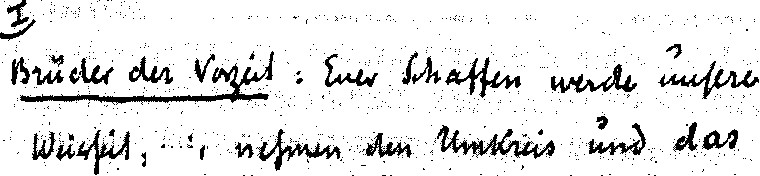 I
Brüder der Vorzeit : Euer Schaffen werde unsere
Weisheit, nehmen den Umkreis und das